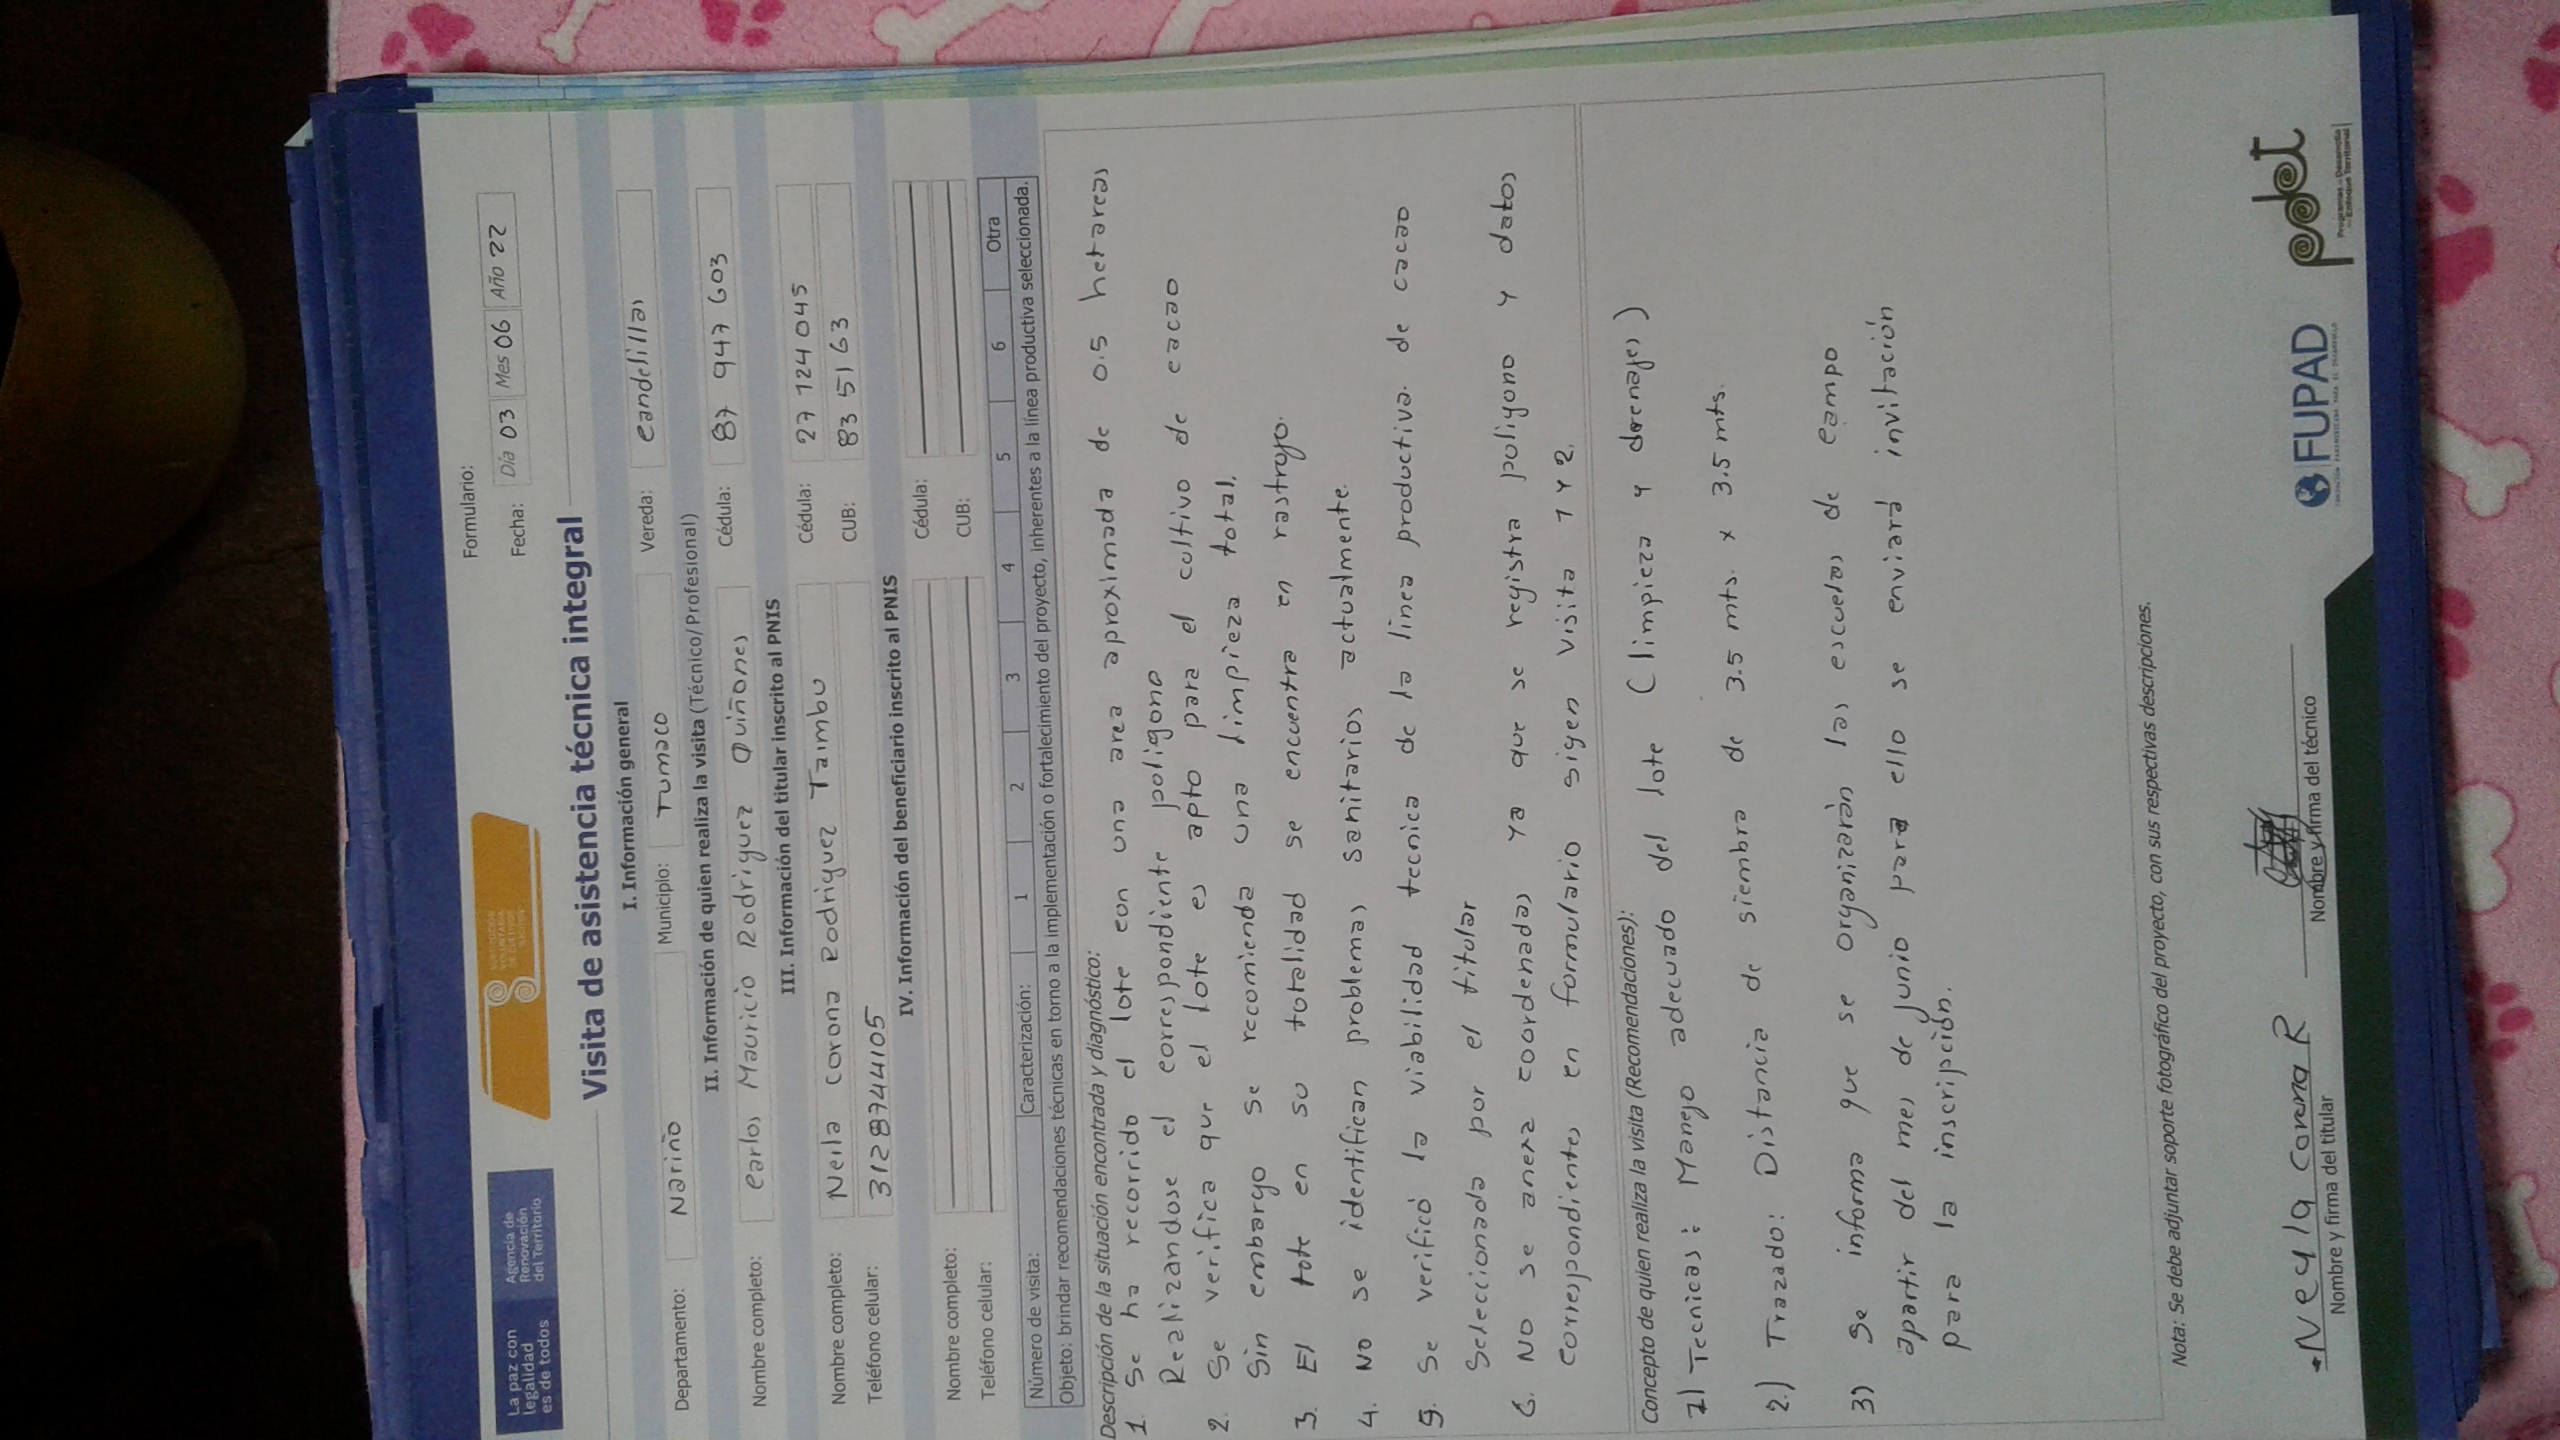 La paz con
legalidad
es de todos
Agencia de
Renovación
del Territorio
SUSTITUCIÓN
VOLUNTARIA
DE CULTIVOS
ILÍCITOS
Formulario:
Fecha: Día 03 Mes 06 Año 22
Visita de asistencia técnica integral
I. Información general
Departamento: Nariño Municipio: Tumaco Vereda: candelillas
II. Información de quien realiza la visita (Técnico/Profesional)
Nombre completo: carlos Mauricio Rodriguez Quiñones Cédula: 87 947 603
III. Información del titular inscrito al PNIS
Nombre completo: Neila corona Rodriguez Taimbu Cédula: 27 124 045
Teléfono celular: 3128744105 CUB: 83 51 63
IV. Información del beneficiario inscrito al PNIS
Nombre completo: Cédula:
Teléfono celular: CUB:
Número de visita: Caracterización: 1 2 3 4 5 6 Otra
Objeto: brindar recomendaciones técnicas en torno a la implementación o fortalecimiento del proyecto, inherentes a la línea productiva seleccionada.
Descripción de la situación encontrada y diagnóstico:
1. Se ha recorrido el lote con una area aproximada de 0.5 hetareas
Realizandose el correspondiente poligono
2. Se verifica que el lote es apto para el cultivo de cacao
Sin embargo se recomienda una limpieza total.
3. El lote en su totalidad se encuentra en rastrojo.
4. No se identifican problemas sanitarios actualmente.
5. Se verificó la viabilidad tecnica de la linea productiva. de cacao
Seleccionada por el titular
6. No se anexa coordenadas ya que se registra poligono y datos
correspondientes en formulario sigen visita 1 y 2.
Concepto de quien realiza la visita (Recomendaciones):
1) Tecnicas: Manejo adecuado del lote (limpieza y drenajes)
2.) Trazado: Distancia de siembra de 3.5 mts. x 3.5 mts.
3) Se informa que se organizaràn las escuelas de campo
apartir del mes de junio para ello se enviará invitación
para la inscripción.
Nota: Se debe adjuntar soporte fotográfico del proyecto, con sus respectivas descripciones.
Neyla Corona R
Nombre y firma del titular
Nombre y firma del técnico
FUPAD
FUNDACIÓN PANAMERICANA PARA EL DESARROLLO
pdet
Programas de Desarrollo
con Enfoque Territorial